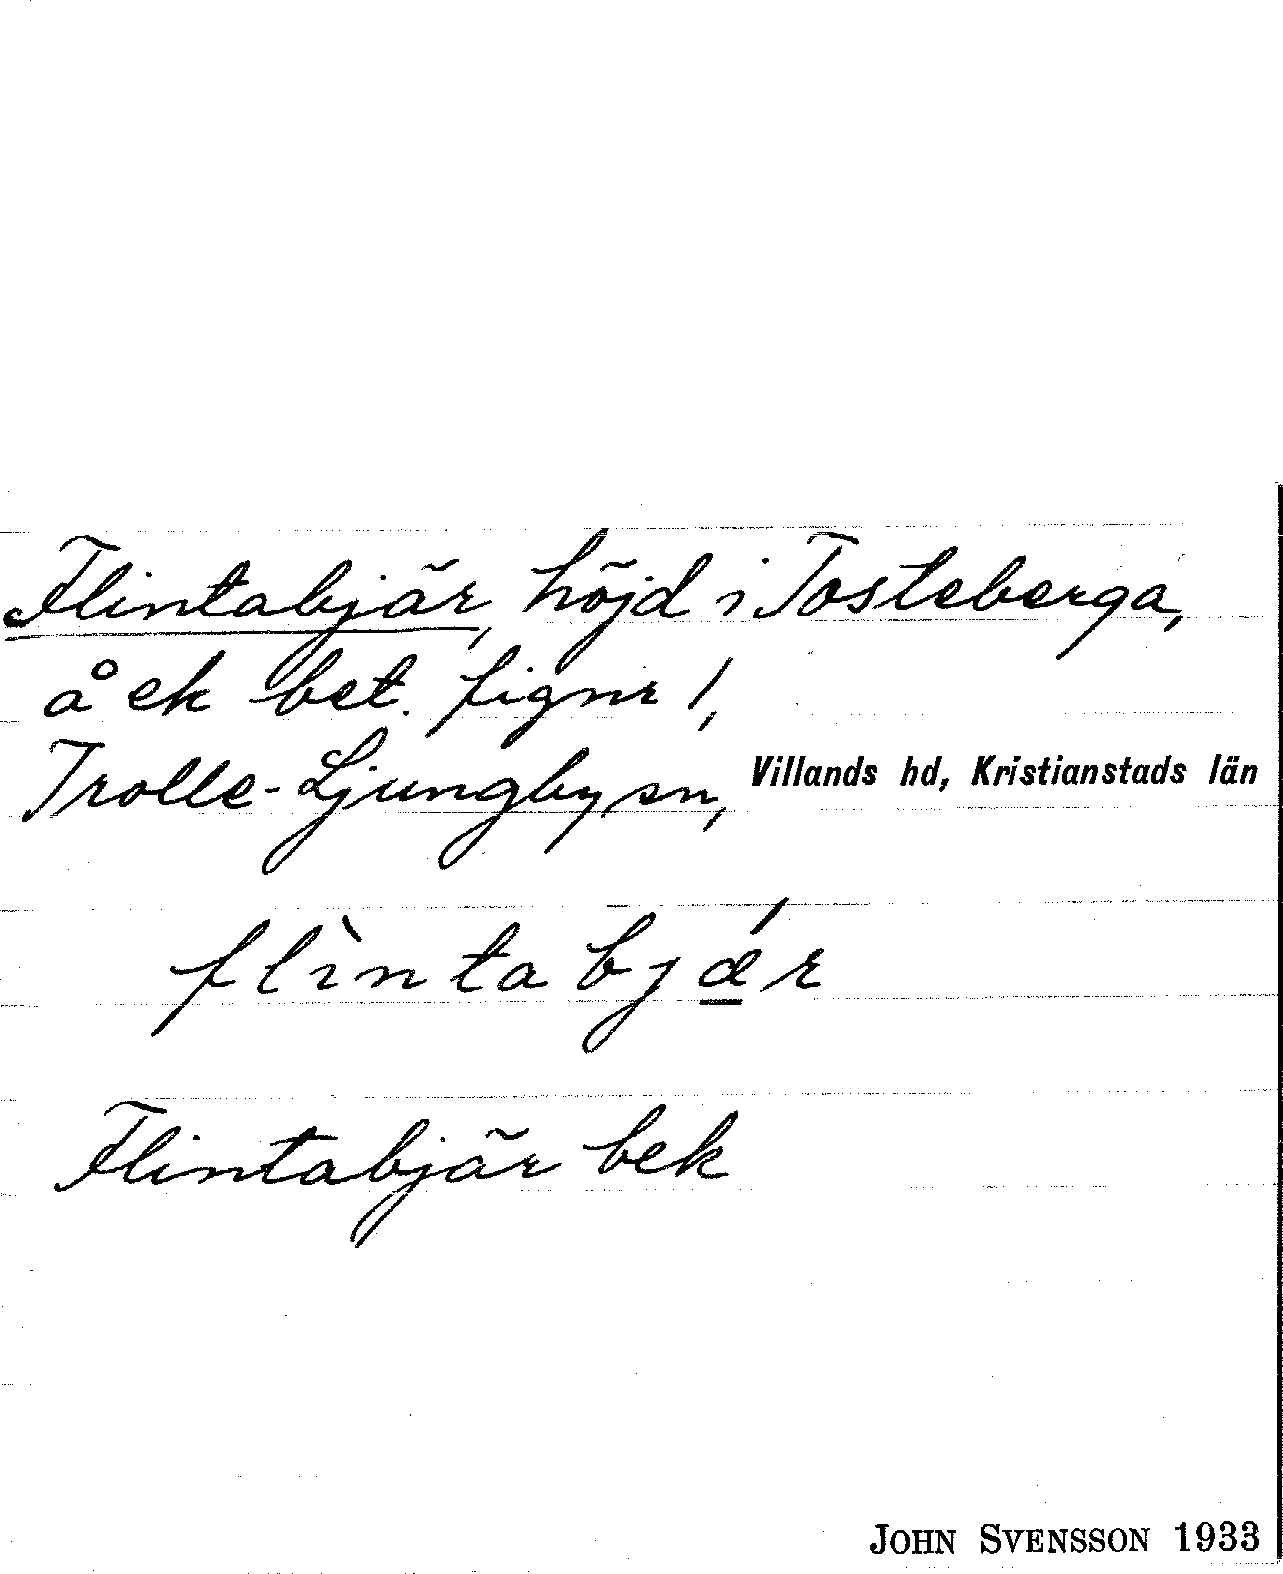 Flintabjär, höjd i Tosteberga,
å ek bet. figur 1,
Trolle-Ljungby sn, Villands hd, Kristianstads län
flìntabjǽr
Flintabjär bek
JOHN SVENSSON 1933